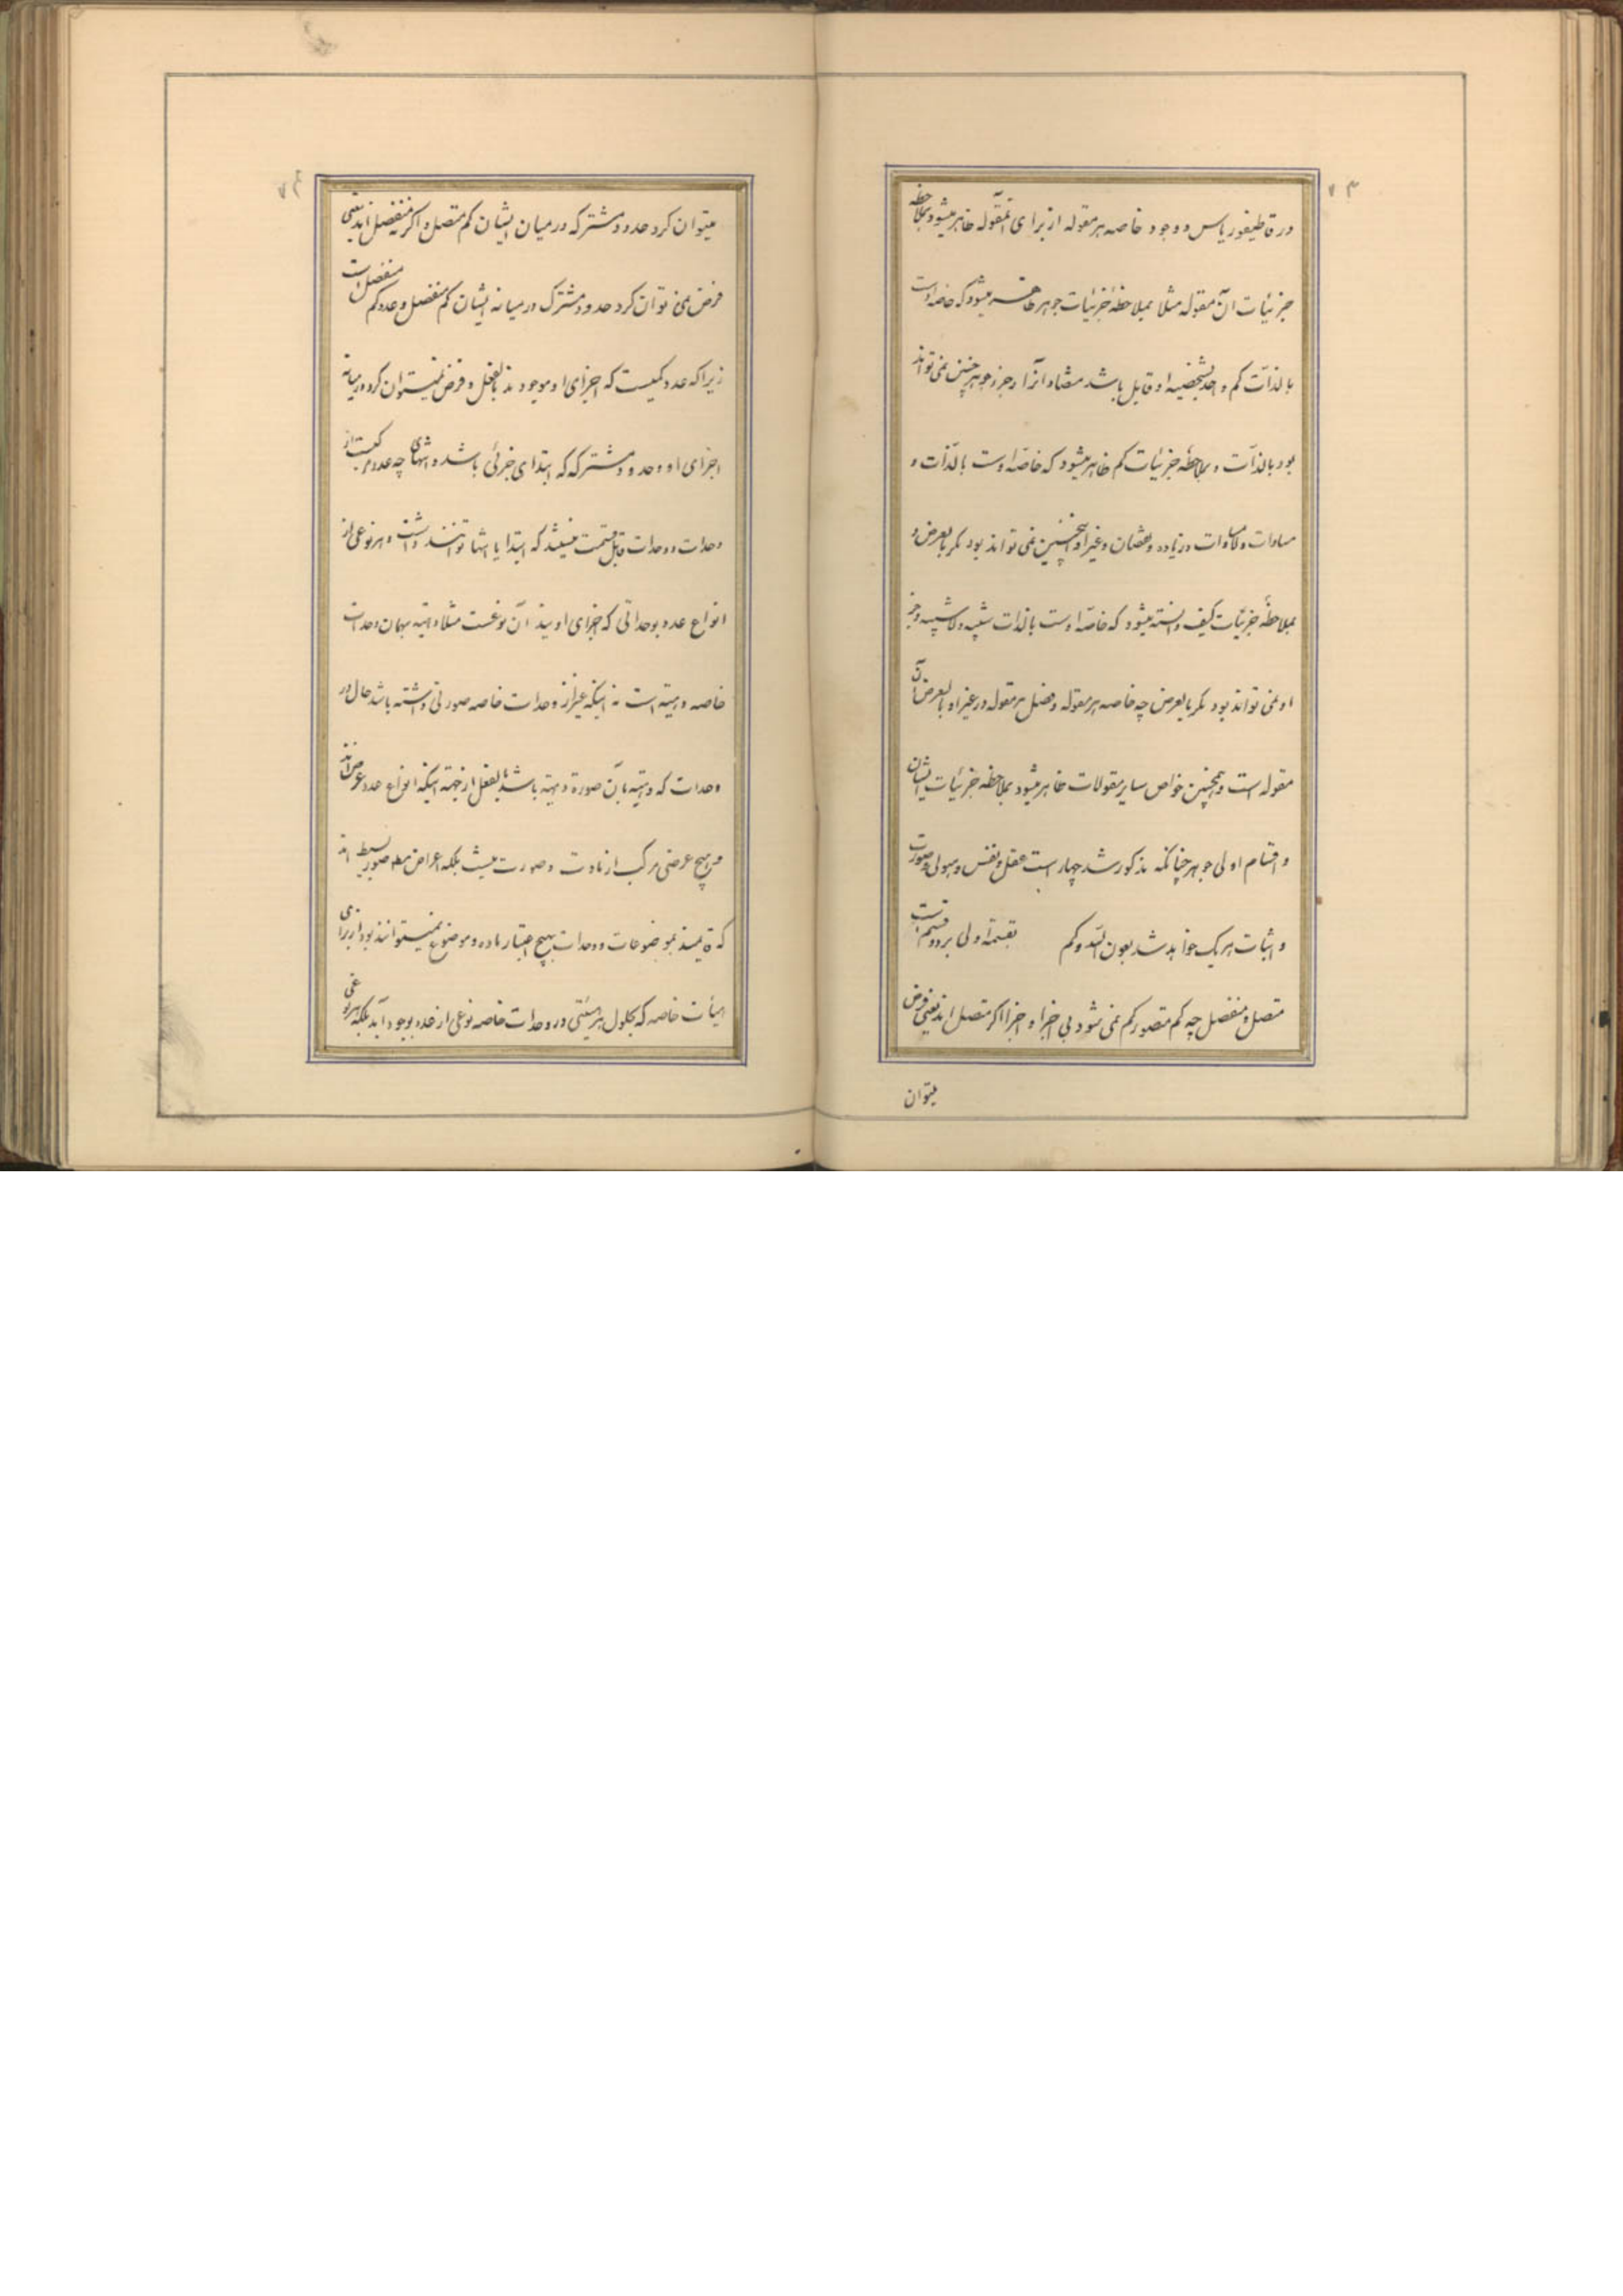 ۷۳
در قاطیغوریاس و وجود خاصه هر مقوله از برای آنمقوله ظاهر میشود بملاحظه
جزئیات آن مقوله مثلا بملاحظهٔ جزئیات جوهر ظاهر میشود که خاصه اوست
بالذات کم واحد بشخصیه او قابل باشد متضاد آنرا و جز جوهر چنین نمی تواند
بود بالذات و بملاحظه جزئیات کم ظاهر میشود که خاصه اوست بالذات و
مساوات و لامساوات و زیاده و نقصان و غیر او اینچنین نمی تواند بود مگر بالعرض و
بملاحظهٔ جزئیات کیف دانسته میشود که خاصه اوست بالذات شبیه و لاشبیه و جز
او نمی تواند بود مگر بالعرض چه خاصه هر مقوله و فصل هر مقوله در غیر او بالعرض آن
مقوله است و همچنین خواص سایر مقولات ظاهر میشود بملاحظه جزئیات ایشان
و اقسام اولی جوهر چنانکه مذکور شد چهار است عقل و نفس و هیولی و صورت
و اثبات هر یک خواهد شد بعون الله و کم بقسمة اولی بر دو قسم است
متصل و منفصل چه کم متصور کم نمی شود بی اجزا و اجزا اگر متصل اند یعنی فرض
میتوان
۷۴
میتوان کرد حدود مشترکه در میان ایشان کم متصل و اگر منفصل اند یعنی
فرض نمی توان کرد حدود مشترک در میانه ایشان کم منفصل و عدد کم منفصل است
زیرا که عدد کمیست که اجزای او موجودند بالفعل و فرض نمیتوان کرد در میانه
اجزای او و حدود مشترکه که ابتدای جزئی باشد و انتهای چه عدد مرکبست از
وحدات و وحدات قابل قسمت نیستند که ابتدا یا انتها توانند داشت و هر نوعی از
انواع عدد بوحداتی که اجزای اویند آن نوعست مثلا دهیه بهمان وحدات
خاصه دهیه است نه اینکه غیر از وحدات خاصه صورتی داشته باشد حال در
وحدات که دهیه بآن صورة دهیه باشد بالفعل از جهة اینکه انواع عدد عرض اند
و هیچ عرضی مرکب از مادت و صورت نیست بلکه اعراض همه صور بسیط اند
که قایمند بموضوعات و وحدات بهیچ اعتبار ماده و موضوع نمیتوانند بود از برای
هیأت خاصه که بحلول هر هیئتی در وحدات خاصه نوعی از عدد بوجود آید بلکه هر نوعی